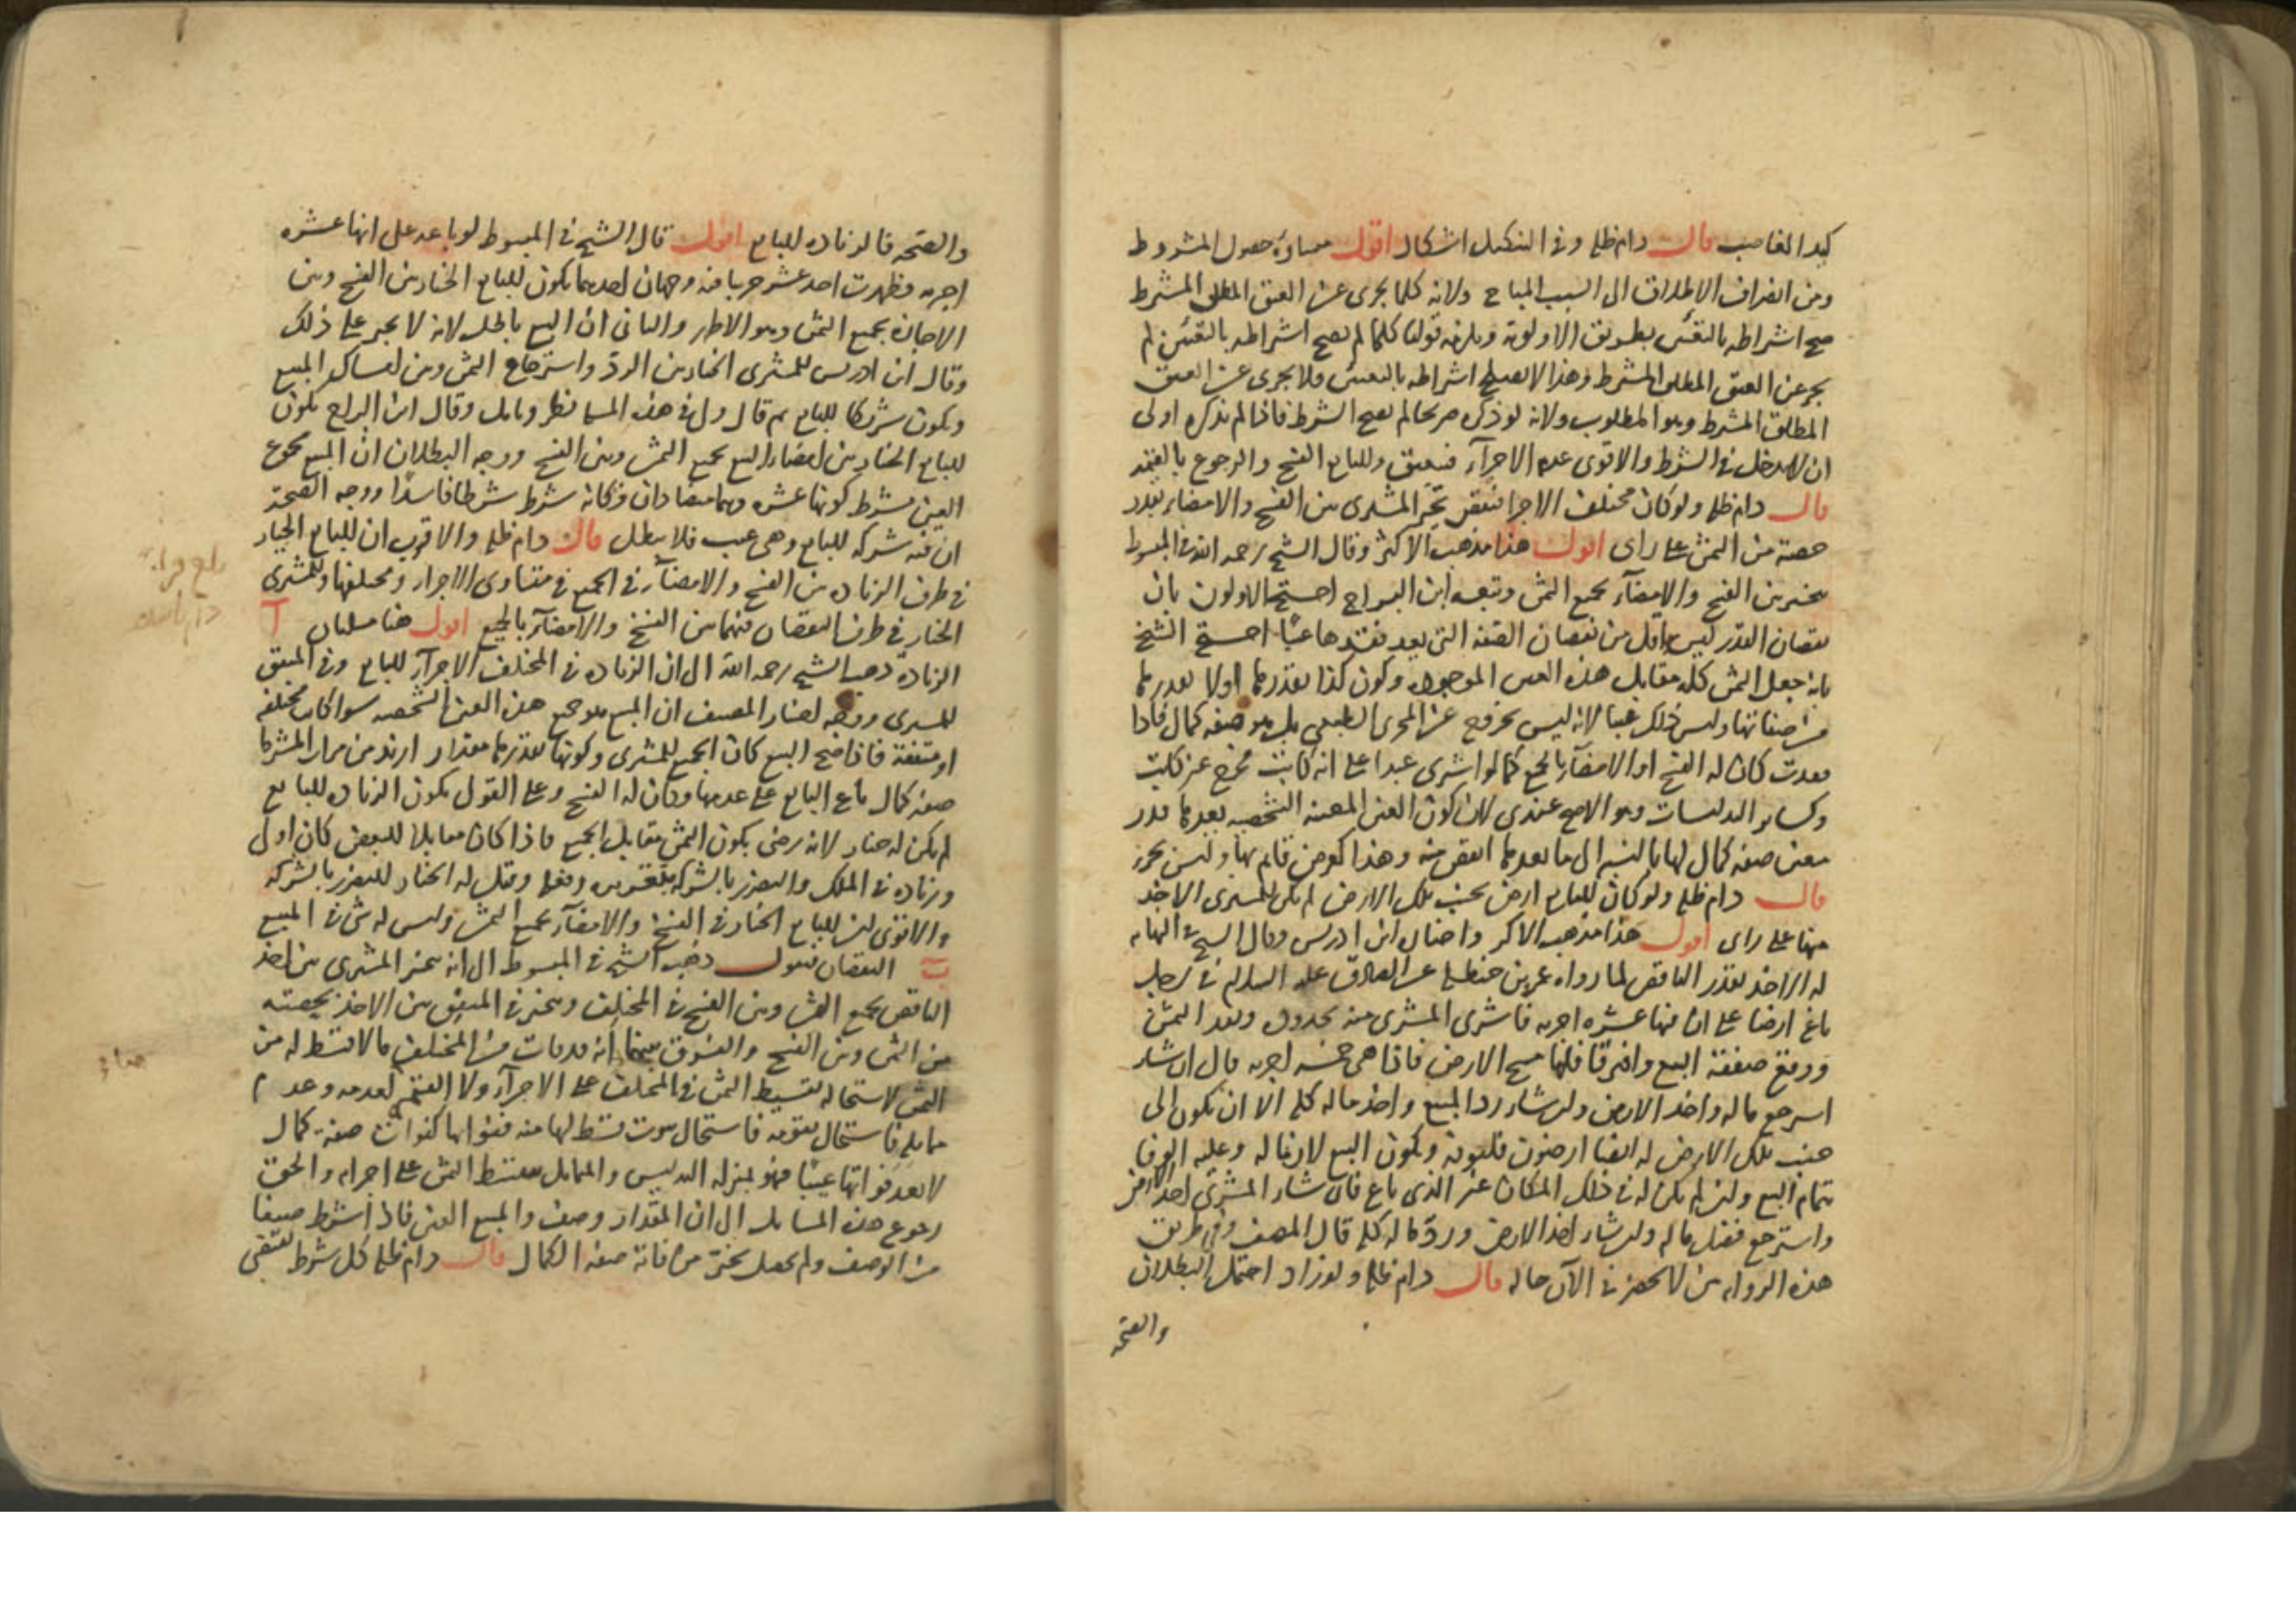 كيد الغاصب قال دام ظله وفى التنكيل اشكال اقول من حصول المشروط
ومن انصراف الاطلاق الى السبب المباح ولانه كلما يجرى عن العتق المطلق المشترط
صح اشتراطه بالتعيين بطريق الاولوية ويلزمه قولنا كلما لم يصح اشتراطه بالتعيين لم
يجز عن العتق المطلق المشترط وهذا لا يصح اشتراطه بالتعيين فلا يجزى عن العتق
المطلق المشترط وهو المطلوب ولانه لو ذكره صريحا لم يصح الشرط فاذا لم يذكره اولى
ان لا يدخل فى الشرط والاقوى عدم الاجزآء فينعتق وللبايع الفسخ والرجوع بالقيمة
قال دام ظله ولو كان مختلف الاجزا فنقص تخير المشترى بين الفسخ والامضاء بقدر
حصته من الثمن على راى اقول هذا مذهب الاكثر وقال الشيخ رحمه الله فى المبسوط
يتخير بين الفسخ والامضآء بجميع الثمن وتبعه ابن البراج احتج الاولون بان
نقصان القدر ليس باقل من نقصان الصفة التى يعد فقدها عيبا احتج الشيخ
بانه جعل الثمن كله مقابل هذه العين الموجودة وكون كذا بقدرها اولا بقدرها
من صفاتها وليس ذلك عيبا لانه ليس بخروج عن المجرى الطبيعى بل هو صفة كمال فاذا
فقدت كان له الفسخ او الامضآء بالجميع كما لو اشترى عبدا على انه كاتب فخرج غير كاتب
وكسائر التدليسات وهو الاصح عندى لان كون العين المعينة الشخصية بقدرها قدر
معين صفة كمال لها بالنسبة الى ما بعدها انقص منه وهذا كعرض قايم بها وليس بجزء
قال دام ظله ولو كان للبايع ارض بجنب تلك الارض لم يكن للمشترى الاخذ
منها على راى اقول هذا مذهب الاكثر واختاره ابن ادريس وقال الشيخ فى النهاية
له الاخذ بقدر الناقص لما رواه عمر بن حنظلة عن الصادق عليه السلام فى رجل
باع ارضا على ان فيها عشره اجربه فاشترى المشترى منه بحدوده ونقد الثمن
ووقع صفقة البيع وافترقا فلما مسح الارض فاذا هى خمسه اجربه قال ان شاء
استرجع ماله واخذ الارض وان شاء رد المبيع واخذ ماله كله الا ان يكون الى
جنب تلك الارض له ايضا ارضون فليوفيه ويكون البيع لازما له وعليه الوفا
بتمام البيع وان لم يكن له فى ذلك المكان غير الذى باع فان شاء المشترى اخذ الارض
واسترجع فضل ماله وان شاء اخذ الارض ورد ماله كله قال المصنف وفى طريق
هذه الرواية من لا يحضرنى الآن حاله قال دام ظله ولو زاد احتمل البطلان
والصحه
والصحه فالزياده للبايع اقول قال الشيخ فى المبسوط لو باعه على انها عشره
اجربه فظهرت احد عشر جريبا فيه وجهان احدهما يكون للبايع الخيار بين الفسخ وبين
الاجازة بجميع الثمن وهو الاظهر والثانى ان البيع باطل لانه لا يجبر على ذلك
وقال ابن ادريس للمشترى الخيار بين الرد واسترجاع الثمن وبين امساك المبيع
ويكون شريكا للبايع ثم قال ولى فى هذه المسايل نظر وتامل وقال ابن البراج يكون
للبايع الخيار بين امضاء البيع بجميع الثمن وبين الفسخ ووجه البطلان ان المبيع مجموع
العين بشرط كونها عشره وهما متضادان فكانه شرط شرطا فاسدا ووجه الصحة
ان فيه شركه للبايع وهى عيب فلا يبطل قال دام ظله والاقرب ان للبايع الخيار
فى طرف الزياده بين الفسخ والامضآء فى الجميع فى متساوى الاجزاء ومختلفها وللمشترى
الخيار فى طرف النقصان فيهما بين الفسخ والامضآء بالجميع اقول هنا مسئلتان آ
الزيادة ذهب الشيخ رحمه الله الى ان الزياده فى المختلف الاجزآء للبايع وفى المتفق
للمشترى ووجه اختيار المصنف ان المبيع هو جميع هذه العين الشخصيه سوا كانت مختلفه
او متفقة فاذا صح البيع كان الجميع للمشترى وكونها بقدرها مقدار ازيد من مراد المشترى
صفة كمال باع البايع على عدمها وكان له الفسخ وعلى القول يكون الزياده للبايع
لم يكن له خيار لانه رضى بكون الثمن مقابل الجميع فاذا كان مقابلا للبعض كان اولى
وزياده فى الملك والتضرر بالشركه وقيل له الخيار للتضرر بالشركه
والاقوى ان للبايع الخيار فى الفسخ والامضآء بجميع الثمن وليس له شئ فى المبيع
ب النقصان فنقول ذهب الشيخ فى المبسوط الى انه يتخير المشترى بين اخذ
الناقص بجميع الثمن وبين الفسخ فى المختلف ويتخير فى المتفق بين الاخذ بحصته
من الثمن وبين الفسخ والفرق بينهما انه قد فات من المختلف ما لا قسط له من
الثمن لاستحالة تقسيط الثمن فى المختلف على الاجزآء ولا القيم لعدمه وعدم
ما يقابله فاستحال تقويمه فاستحال ثبوت قسط لها منه ففواتها كفوات صفة كمال
لا يعد فواتها عيبا فهو بمنزله التدليس والتماثل يقتسط الثمن على اجزائه والحق
رجوع هذه المسايل الى ان المقدار وصف والمبيع العين فاذا اشترط صنفا
من الوصف ولم يحصل تخير من فاته صفة الكمال قال دام ظله كل شرط يقتضى
بلغ قراءة
دام ظله